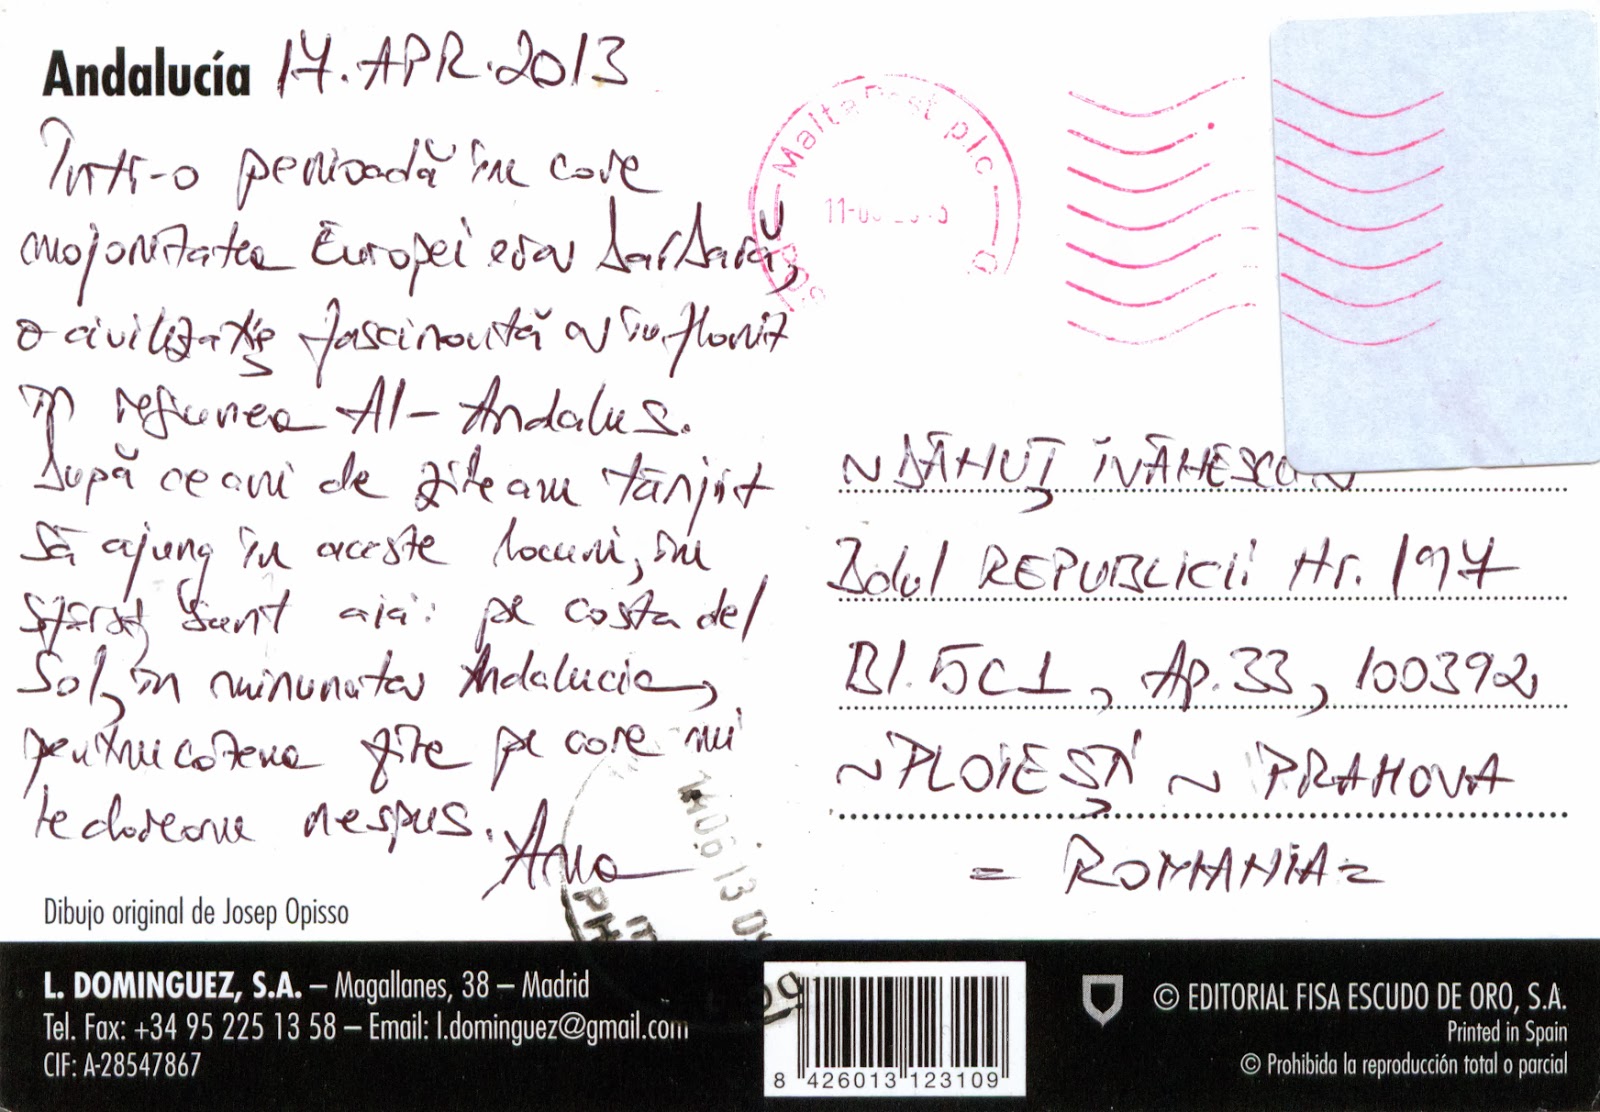 Andalucía 17.APR.2013
Într-o perioadă în care
majoritatea Europei era barbară,
o civilizație fascinantă a înflorit
în regiunea Al-Andalus.
După ce ani de zile am tânjit
să ajung în aceste locuri, în
sfârșit sunt aici: pe costa del
Sol, în minunata Andalucia,
pentru câteva zile pe care mi
le doream nespus.
Ana
Dibujo original de Josep Opisso
Malta Post plc
Bdul REPUBLICII Nr. 197
Bl. 5C1, Ap. 33, 100392
~ PLOIEȘTI ~ PRAHOVA
= ROMANIA =
L. DOMINGUEZ, S.A. – Magallanes, 38 – Madrid
Tel. Fax: +34 95 225 13 58 – Email: l.dominguez@gmail.com
CIF: A-28547867
8 426013 123109
© EDITORIAL FISA ESCUDO DE ORO, S.A.
Printed in Spain
© Prohibida la reproducción total o parcial